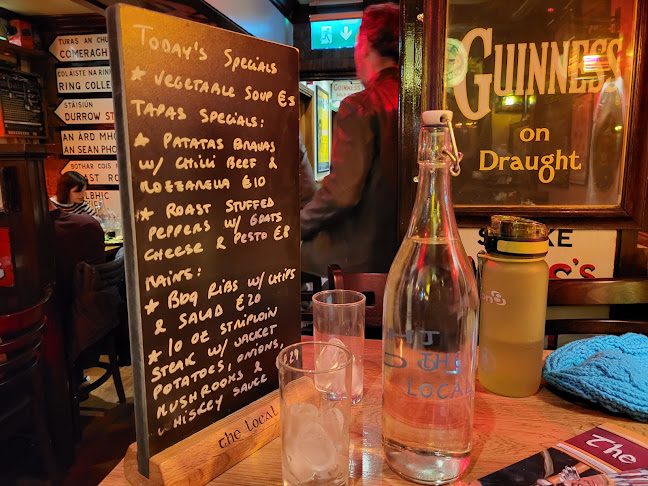 Today's Specials
* VEGETABLE SOUP €5
TAPAS SPECIALS:
* PATATAS BRAVAS
W/ CHILLI BEEF &
MOZZARELLA €10
* ROAST STUFFED
PEPPERS W/ GOATS
CHEESE & PESTO €8
MAINS:
* BBQ RIBS W/ CHIPS
& SALAD €20
* 10 OZ STRIPLOIN
STEAK W/ JACKET
POTATOES, ONIONS,
MUSHROOMS &
WHISKEY SAUCE
€29
the Local
TURAS AN CHU
COMERAGH
COLÁISTE NA RINN
RING COLLE
STÁISIÚN
DURROW
AN ÁRD MHÓ
AN SEAN PHO
BOTHAR COIS
GUINNESS
on
Draught
THE
LOCAL
The